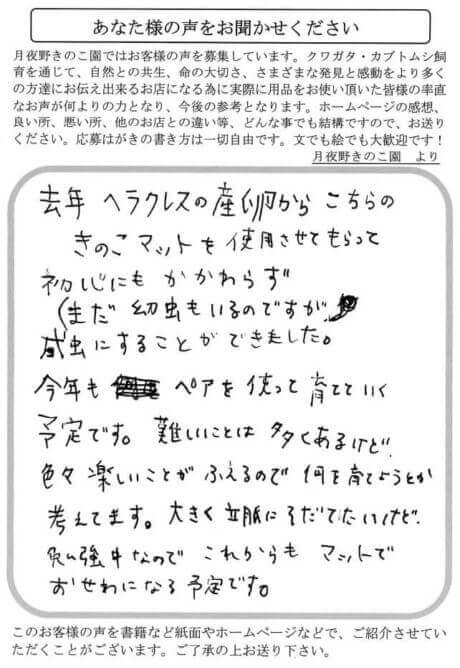 あなた様の声をお聞かせください
月夜野きのこ園ではお客様の声を募集しています。クワガタ・カブトムシ飼
育を通じて、自然との共生、命の大切さ、さまざまな発見と感動をより多く
の方達にお伝え出来るお店になる為に実際に用品をお使い頂いた皆様の率直
なお声が何よりの力となり、今後の参考となります。ホームページの感想、
良い所、悪い所、他のお店との違い等、どんな事でも結構ですので、お送り
ください。応募はがきの書き方は一切自由です。文でも絵でも大歓迎です！
月夜野きのこ園　より
去年 ヘラクレスの産卵から こちらの
きのこマットを使用させてもらって
初心にもかかわらず
(まだ 幼虫もいるのですが
成虫にすることができました。
今年も ペアを使って育てていく
予定です。難しいことは多々くあるけど、
色々楽しいことが ふえるので 何を育てようとか
考えてます。大きく立派にそだてたいけど、
勉強中なので これからも マットで
おせわになる予定です。
このお客様の声を書籍など紙面やホームページなどで、ご紹介させてい
ただくことがございます。ご了承の上お送り下さい。